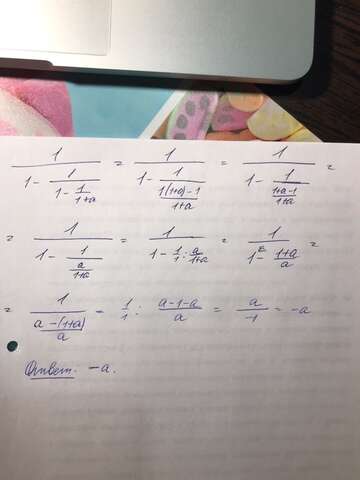 1/(1 - 1/(1 - 1/(1+a))) = 1/(1 - 1/((1(1+a) - 1)/(1+a))) = 1/(1 - 1/((1+a-1)/(1+a))) =
= 1/(1 - 1/(a/(1+a))) = 1/(1 - 1/1 : a/(1+a)) = 1/(1 - (1+a)/a) =
= 1/((a - (1+a))/a) = 1/1 : (a-1-a)/a = a/-1 = -a
Ответ: -a.